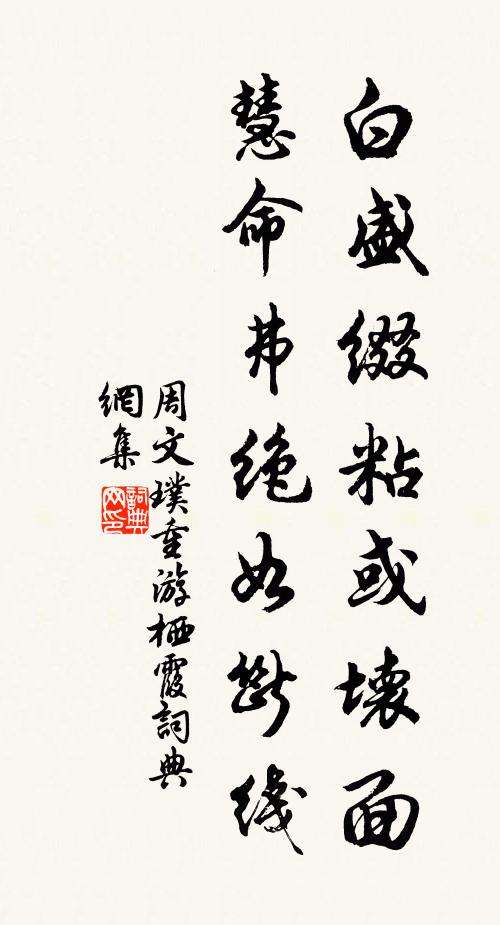 白盛缀粘或壞面
慧命弗绝如斷线
周文璞重游栖霞詞典
網集
詞典
网印